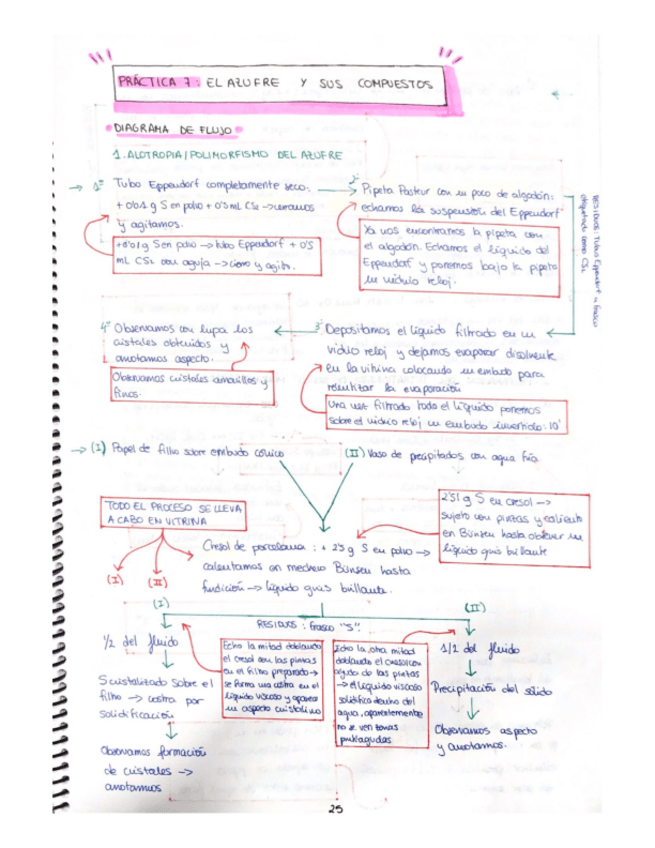 PRÁCTICA 7: EL AZUFRE Y SUS COMPUESTOS
DIAGRAMA DE FLUJO
1. ALOTROPIA/POLIMORFISMO DEL AZUFRE
1º Tubo Eppendorf completamente seco:
+ 0'01 g S en polvo + 0'5 mL CS2 → cerramos
y agitamos.
+0'01g S en polvo → tubo Eppendorf + 0'5
mL CS2 con aguja → cierro y agito.
2º Pipeta Pasteur con un poco de algodón:
echamos la suspensión del Eppendorf
Ya nos encontramos la pipeta con
el algodón. Echamos el líquido del
Eppendorf y ponemos bajo la pipeta
un vidrio reloj.
RESIDUOS: Tubos Eppendorf a frasco
etiquetado como CS2
3º Depositamos el líquido filtrado en un
vidrio reloj y dejamos evaporar disolvente
en la vitrina colocando un embudo para
la evaporación
Una vez filtrado todo el líquido ponemos
sobre el vidrio reloj un embudo invertido: 10'
4º Observamos con lupa los
cristales obtenidos y
anotamos aspecto.
Observamos cristales amarillos y
finos.
→ (I) Papel de filtro sobre embudo cónico
(II) Vaso de precipitados con agua fría
TODO EL PROCESO SE LLEVA
A CABO EN VITRINA
(I) (II)
2'51 g S en cresol →
sujeto con pinzas y caliento
en Bunsen hasta obtener un
líquido gris brillante
Cresol de porcelana: + 2'5 g S en polvo →
calentamos en mechero Bunsen hasta
fundición → líquido gris brillante.
(I) (II)
RESIDUOS: frasco "S".
1/2 del fluido
S cristalizado sobre el
filtro → costra por
solidificación
Observamos formación
de cristales →
anotamos
Echo la mitad doblando
el cresol con las pinzas
en el filtro preparado →
se forma una costra en el
líquido viscoso y aparece
un aspecto cristalino
Echo la otra mitad
doblando el cresol con
ayuda de las pinzas
→ el líquido viscoso
solidifica dentro del
agua, aparentemente
no se ven zonas
puntiagudas
1/2 del fluido
Precipitación del sólido
Observamos aspecto
y anotamos.
25